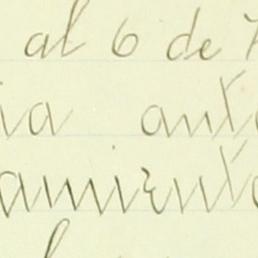 al 6 de
ia ant
amient